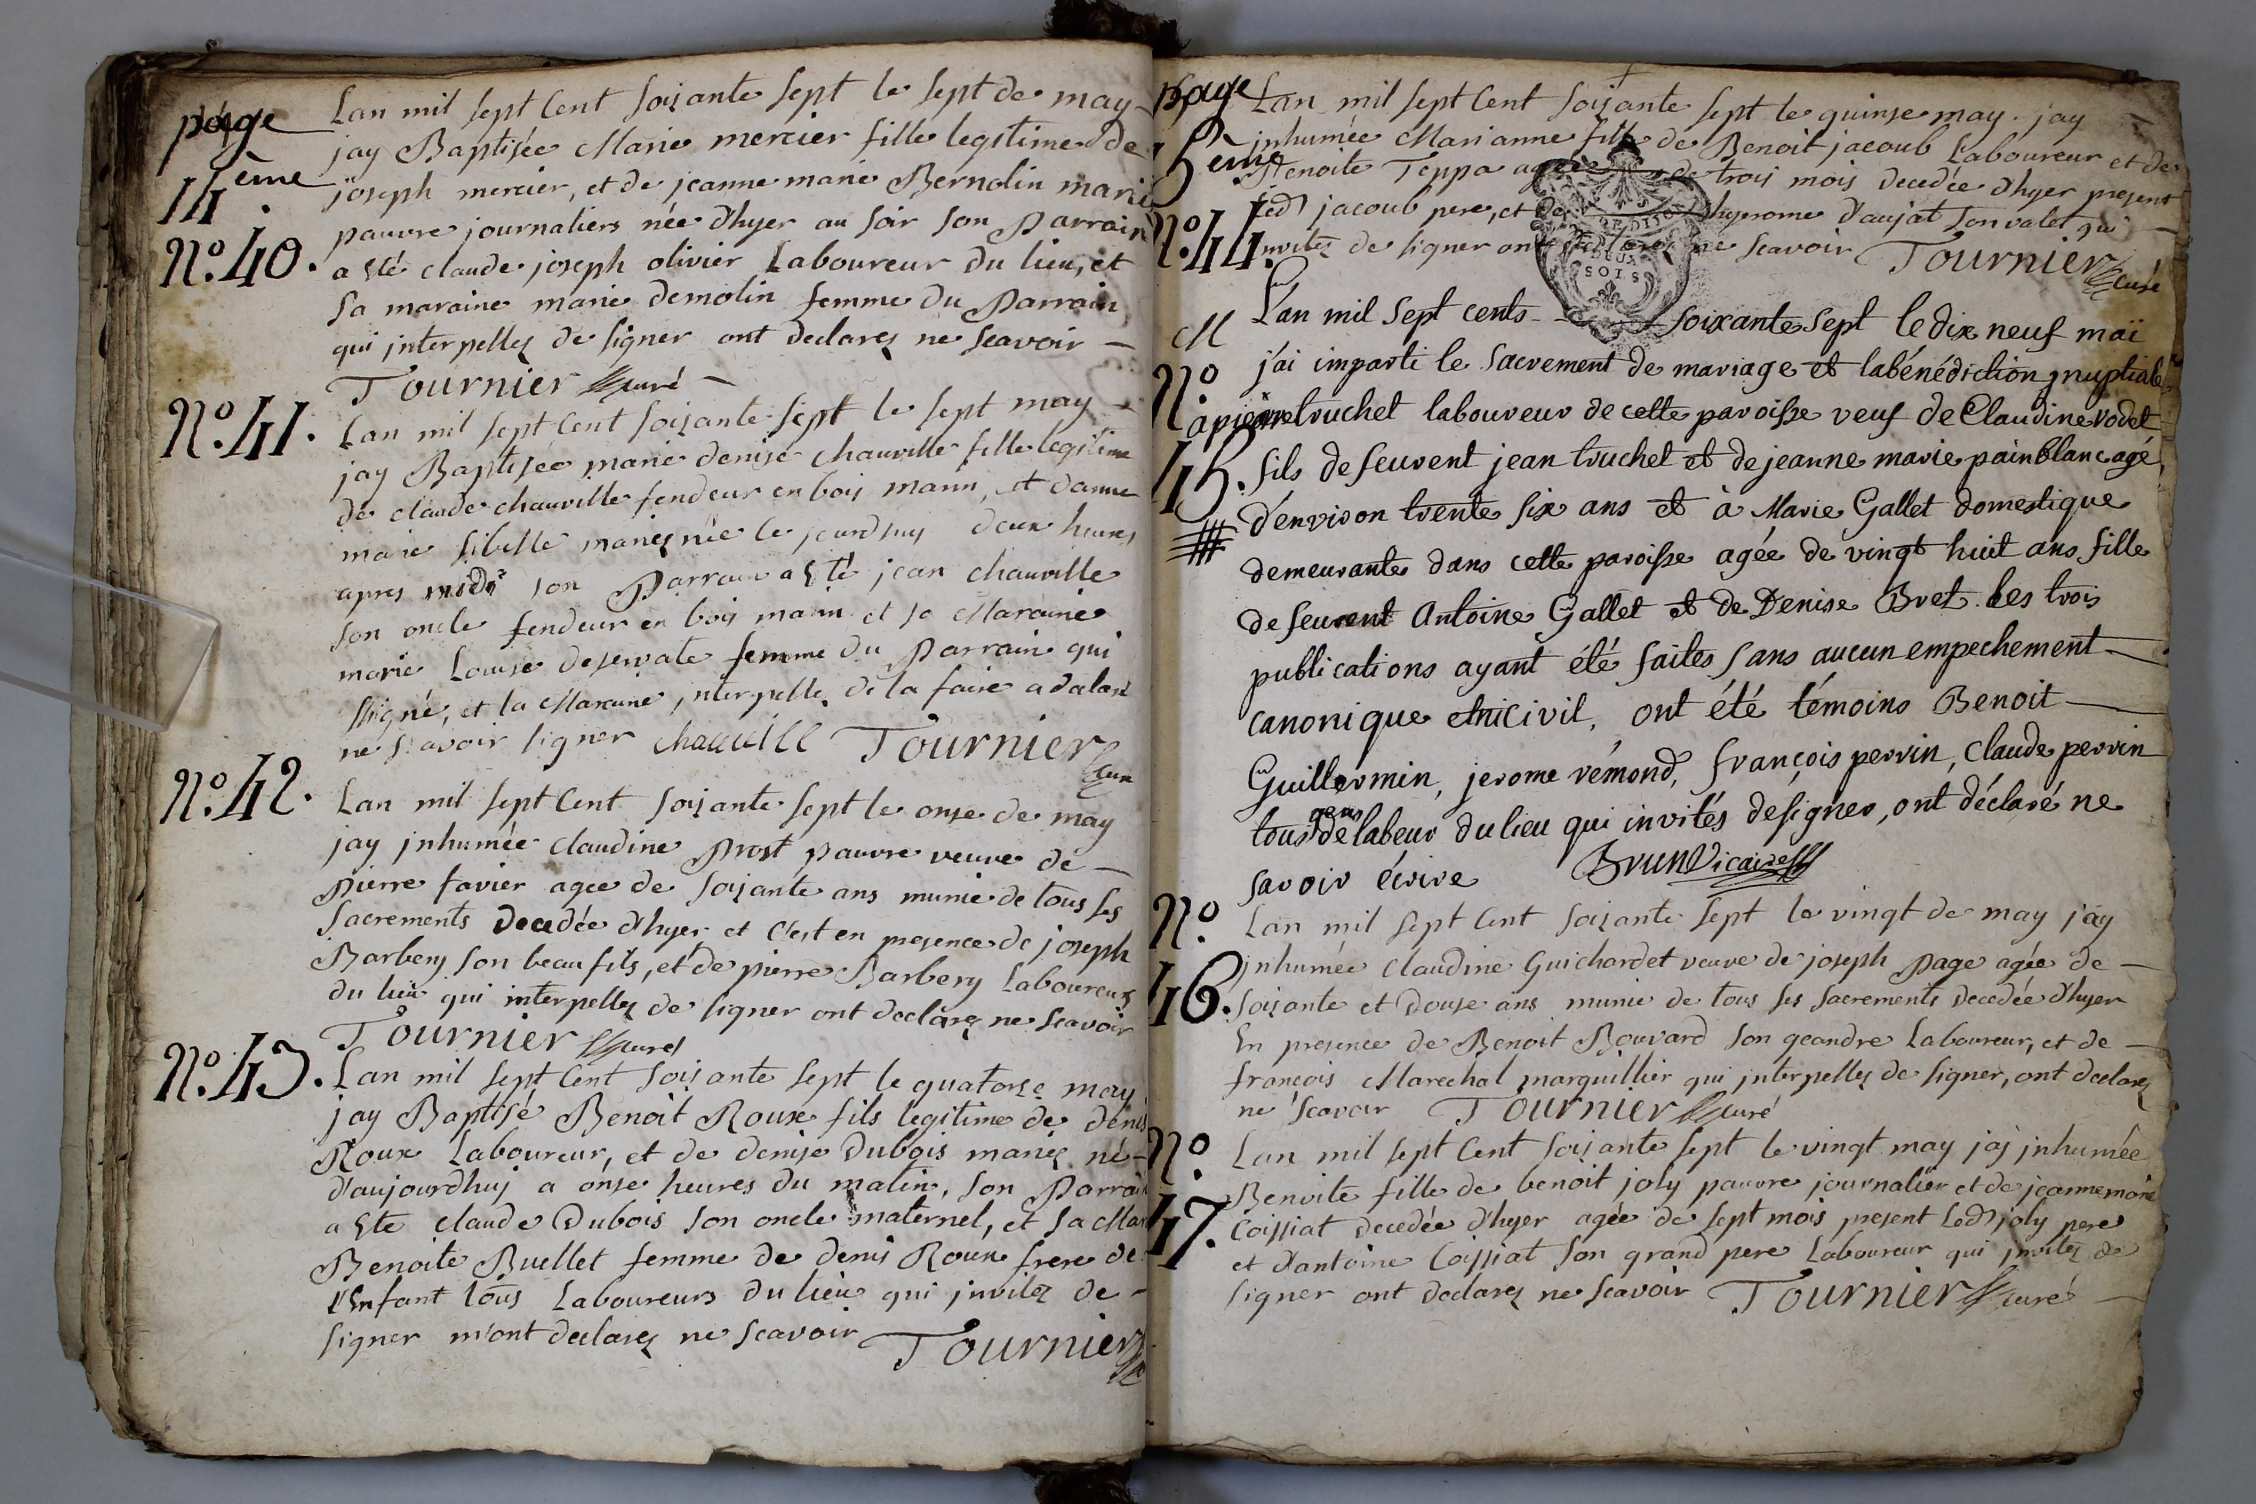 page
14ème
Lan mil sept Cent soixante sept le sept de may
jay Baptisée Marie mercier fille legitime de
joseph mercier, et de jeanne marie Bernolin mariés
N.º 40.
pauvre journaliers née d'hyer au soir son Parrain
a Eté claude joseph olivier Laboureur du lieu, et
sa maraine marie demolin femme du Parrain
qui interpellez de signer ont declarez ne scavoir
Tournier curé
N.º 41.
Lan mil sept Cent soixante sept le sept may
jay Baptisée marie denise chauville fille legitime
de claude chauville fendeur en bois marin, et danne
marie sibelle mariez née le jourdhuy deux heures
apres midi son Parrain a Eté jean chauville
son oncle fendeur en bois marin et sa Maraine
marie Louise deservate femme du Parrain qui
signé, et la Maraine interpellé de la faire a declaré
ne scavoir signer chauville Tournier curé
N.º 42.
Lan mil sept Cent soixante sept le onse de may
jay jnhumée claudine Prost pauvre veuve de
Pierre favier agee de soixante ans munie de tous ses
sacrements decedée d'hyer et C'est en presence de joseph
Barbery son beau fils, et de pierre Barbery Laboureurs
du lieu qui interpellez de signer ont declarez ne scavoir
Tournier curé
N.º 43.
Lan mil sept Cent soixante sept le quatorse may
jay Baptisé Benoit Roux fils legitime de denis
Roux Laboureur, et de denise Dubois mariez né
d'aujourdhuj a onse heures du matin, son Parrain
a Ete claude Dubois son oncle maternel, et sa Mar
Benoite Buellet femme de denis Roux frere de
l'Enfant tous Laboureurs du lieu qui jnvitez de
signer m'ont declarez ne scavoir Tournier
page
15ème
Lan mil sept Cent soixante sept le quinse may jay
jnhumée Marianne fille de Benoit jacoub Laboureur et de
Benoite Teppa agée de trois mois decedée d'hyer present
N.º 44.
led jacoub pere, et de hyerome d'aujat son valet qui
invitez de signer ont declarez ne scavoir Tournier curé
DEUX
SOLS
M
N.º 45.
L'an mil sept cents soixante sept le dix neuf maï
j'ai imparti le sacrement de mariage et la bénédiction nuptiale
a pierre truchet laboureur de cette paroisse veuf de Claudine vodet
fils de feu vent jean truchet et de jeanne marie painblanc agé
d'environ trente six ans et à Marie Gallet domestique
demeurante dans cette paroisse agée de vingt huit ans fille
de feu vent Antoine Gallet et de Denise Bret. Les trois
publications ayant été faites sans aucun empechement
canonique et ni civil, ont été témoins Benoit
Guillermin, jerome rémond, françois perrin, Claude perrin
tous gens de labeur du lieu qui invités de signer, ont déclaré ne
savoir écrire Brun Vicaire
N.º 46.
Lan mil sept Cent soixante sept le vingt de may jay
jnhumée claudine Guichardet veuve de joseph Page agée de
soixante et douse ans munie de tous ses sacrements decedée d'hyer
En presence de Benoit Bouvard son geandre Laboureur, et de
françois Marechal marguillier qui jnterpellez de signer, ont declarez
ne scavoir Tournier curé
N.º 47.
Lan mil sept Cent soixante sept le vingt may jaj jnhumée
Benoite fille de benoit joly pauvre journalier et de jeanne marie
Coissiat decedée d'hyer agée de sept mois present led joly pere
et d'antoine Coissiat son grand pere Laboureur qui jnvitez de
signer ont declarez ne scavoir Tournier curé